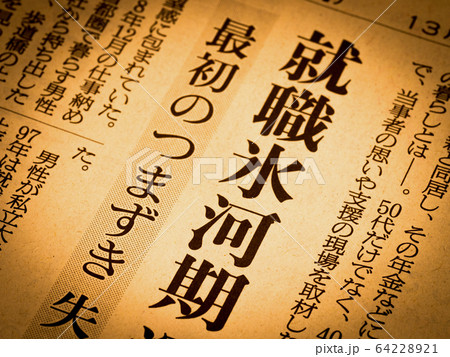 13
と同居し、その年金などに
の暮らしとは―。50代だけでなく、40
で、当事者の思いや支援の現場を取材し
就職氷河期
最初のつまずき 失
感に包まれていた。
8年12月の仕事納め
都圏で暮らす男性
から持ち出した
歩道橋の上
た。
男性が私立大
97年は就
PIXTA
pixta.jp - 64228921